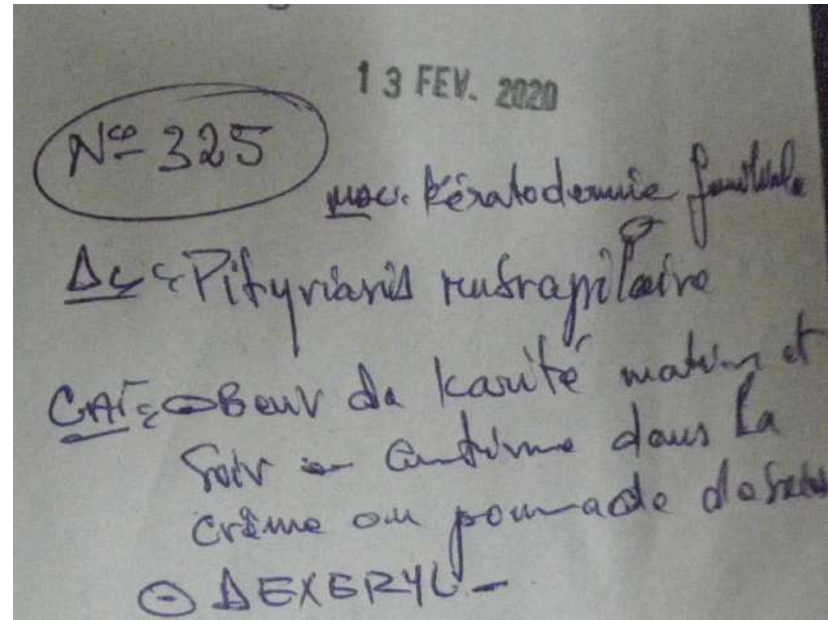 13 FEV. 2020
N° 325
Kératodermie familiale
Pityriasis rubra pilaire
CAT: Beur de karité matin et
Soir continue dans la
crème ou pommade de
DEXERYL